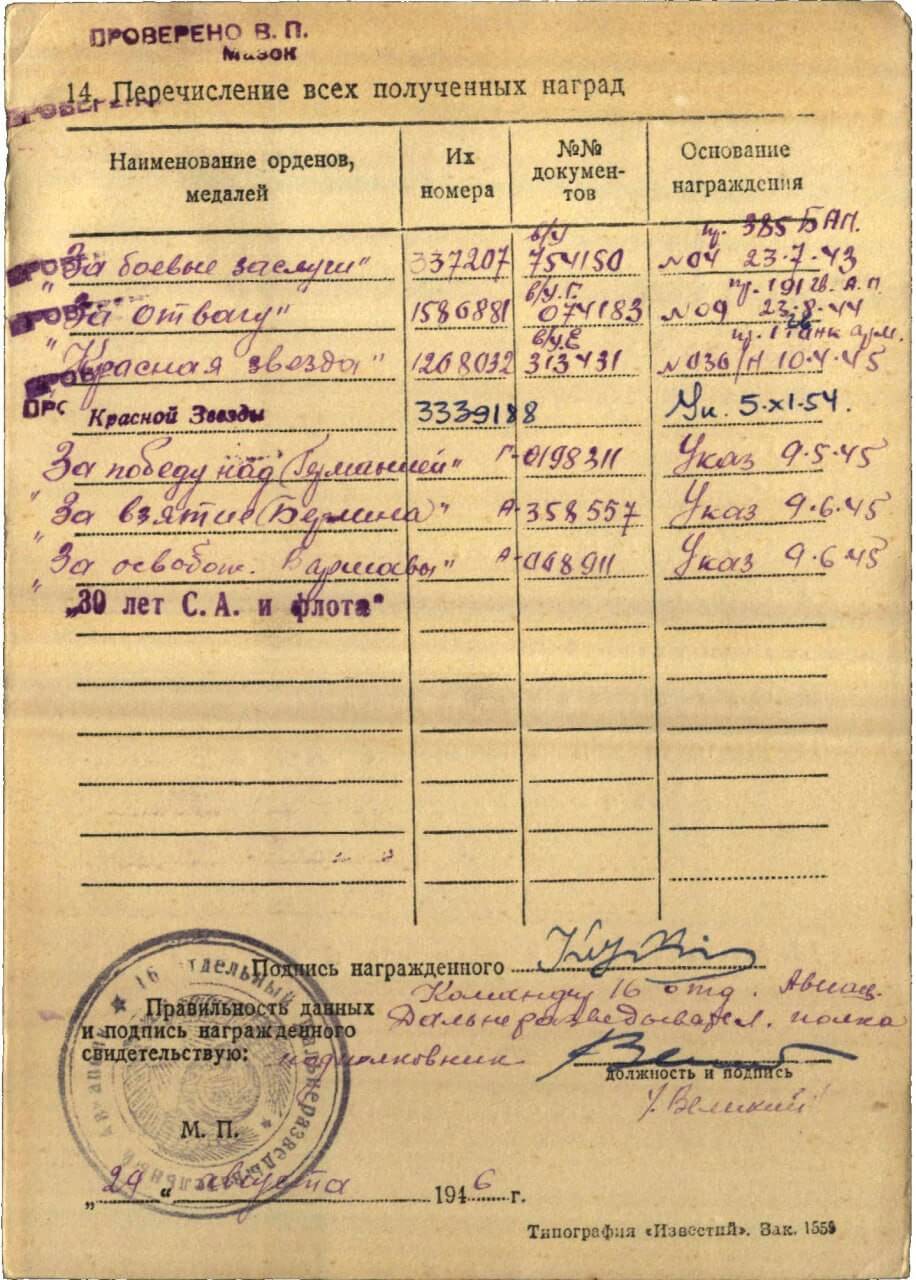 ПРОВЕРЕНО В. П.
Мазок
14. Перечисление всех полученных наград
Наименование орденов, медалей
Их номера
№№ документов
Основание награждения
пр. 385 БАП.
в/У
"За боевые заслуги" 337207 754150 №04 23-7-43
в/У.Г. пр. 191 гв. А.П.
"За отвагу" 1586881 074183 №09 23-8-44
в/У.Е пр. 1 танк арм.
"Красная звезда" 1208032 313431 №030/Н 10-4-45
Красной Звезды 3339188 Ук. 5-XI-54.
"За победу над Германией" Г-0198311 Указ 9-5-45
"За взятие Берлина" А-358557 Указ 9-6-45
"За освобож. Варшавы" А-008911 Указ 9-6-45
„30 лет С. А. и флота"
Подпись награжденного
Командир 16 отд. Авиац.
Правильность данных Дальнеразведывател. полка
и подпись награжденного
свидетельствую: подполковник
должность и подпись
М. П. /. Великий/
„29" августа 1946 г.
Типография «Известий». Зак. 1559